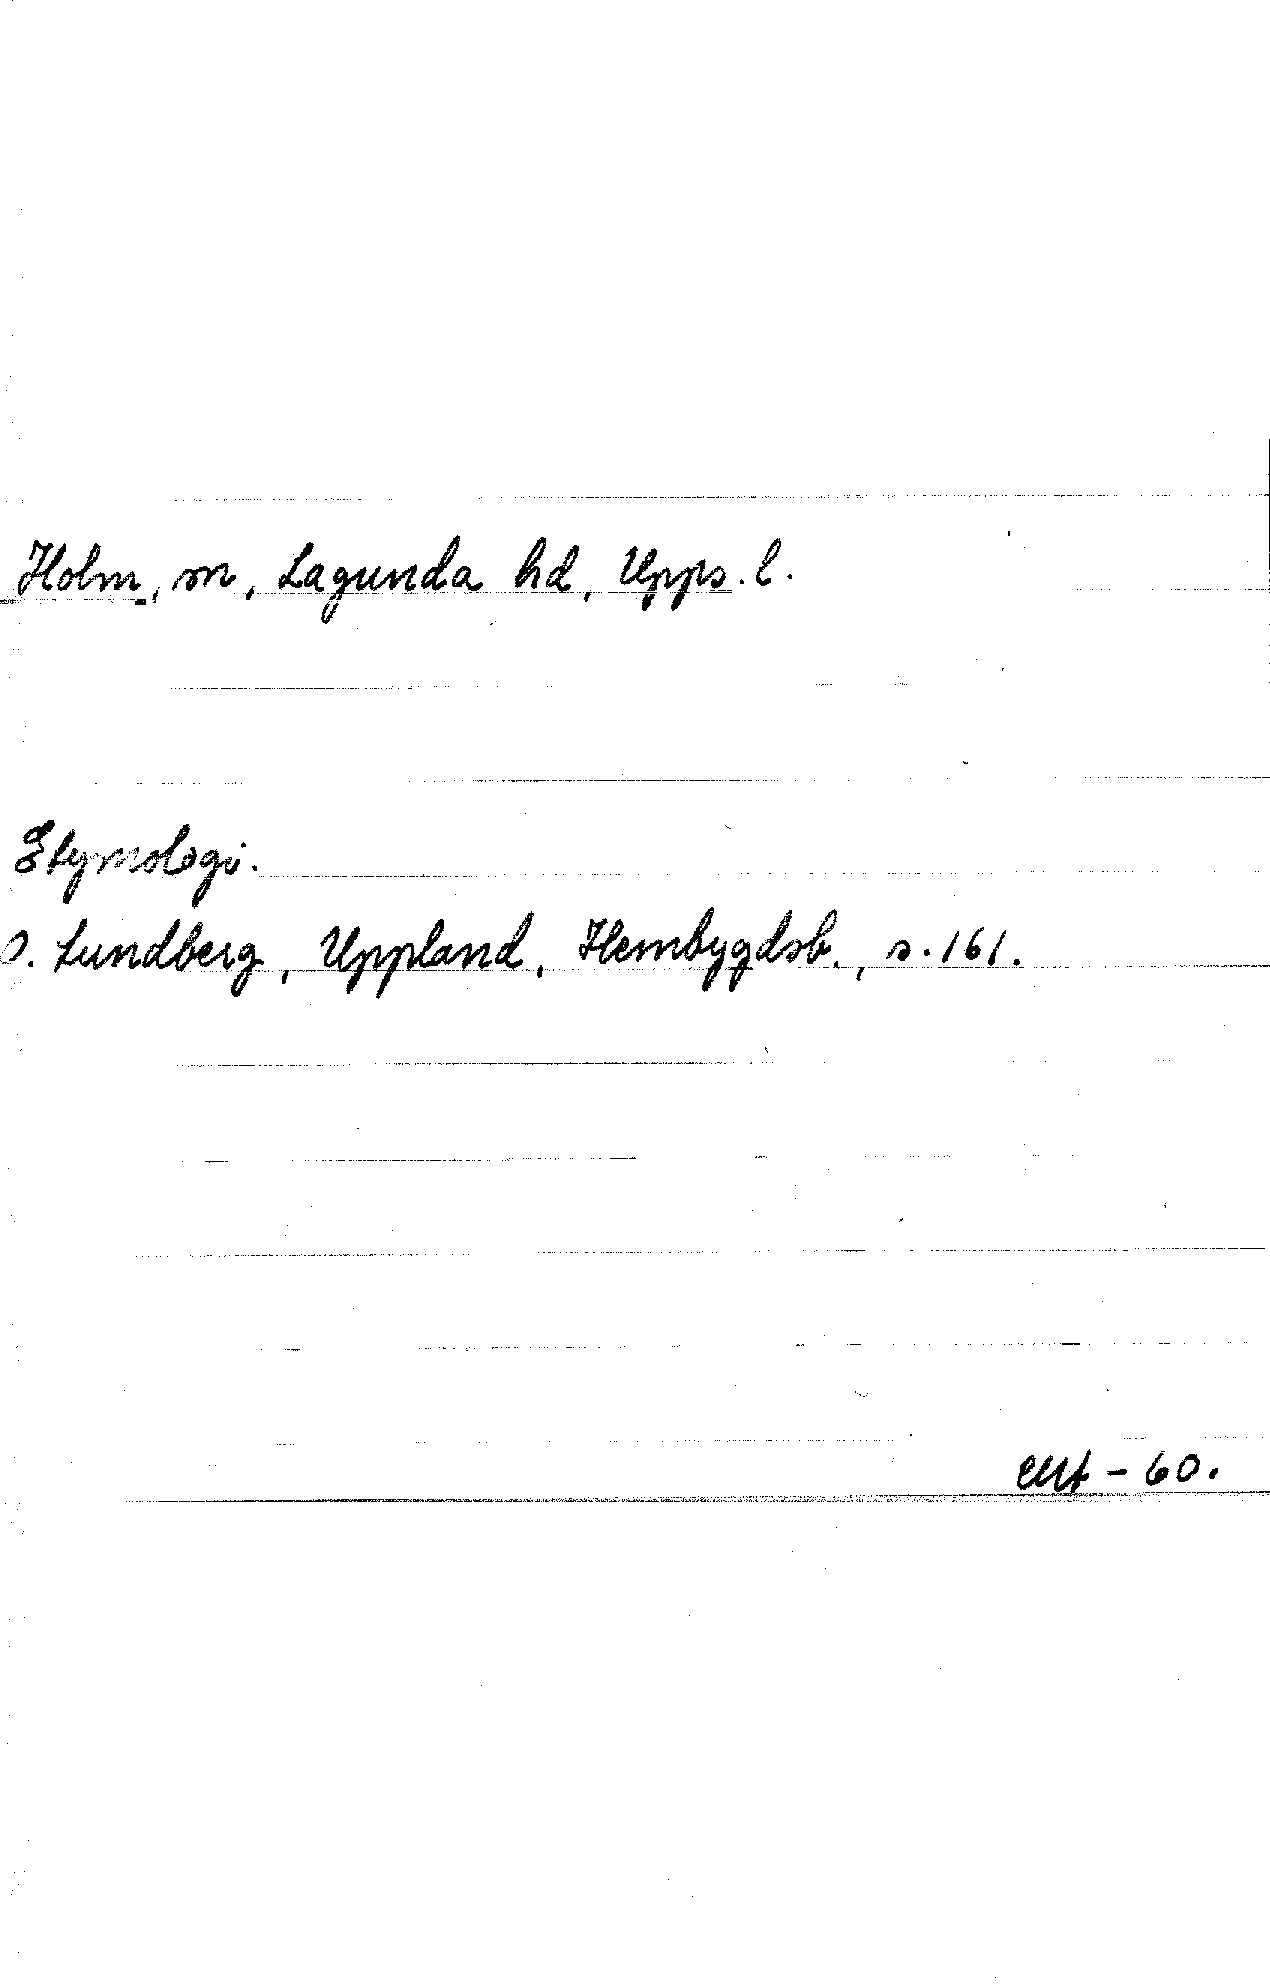 Holm, sn, Lagunda hd, Upps. l.
Etymologi.
O. Lundberg, Uppland, Hembygdsb., s. 161.
- 60.